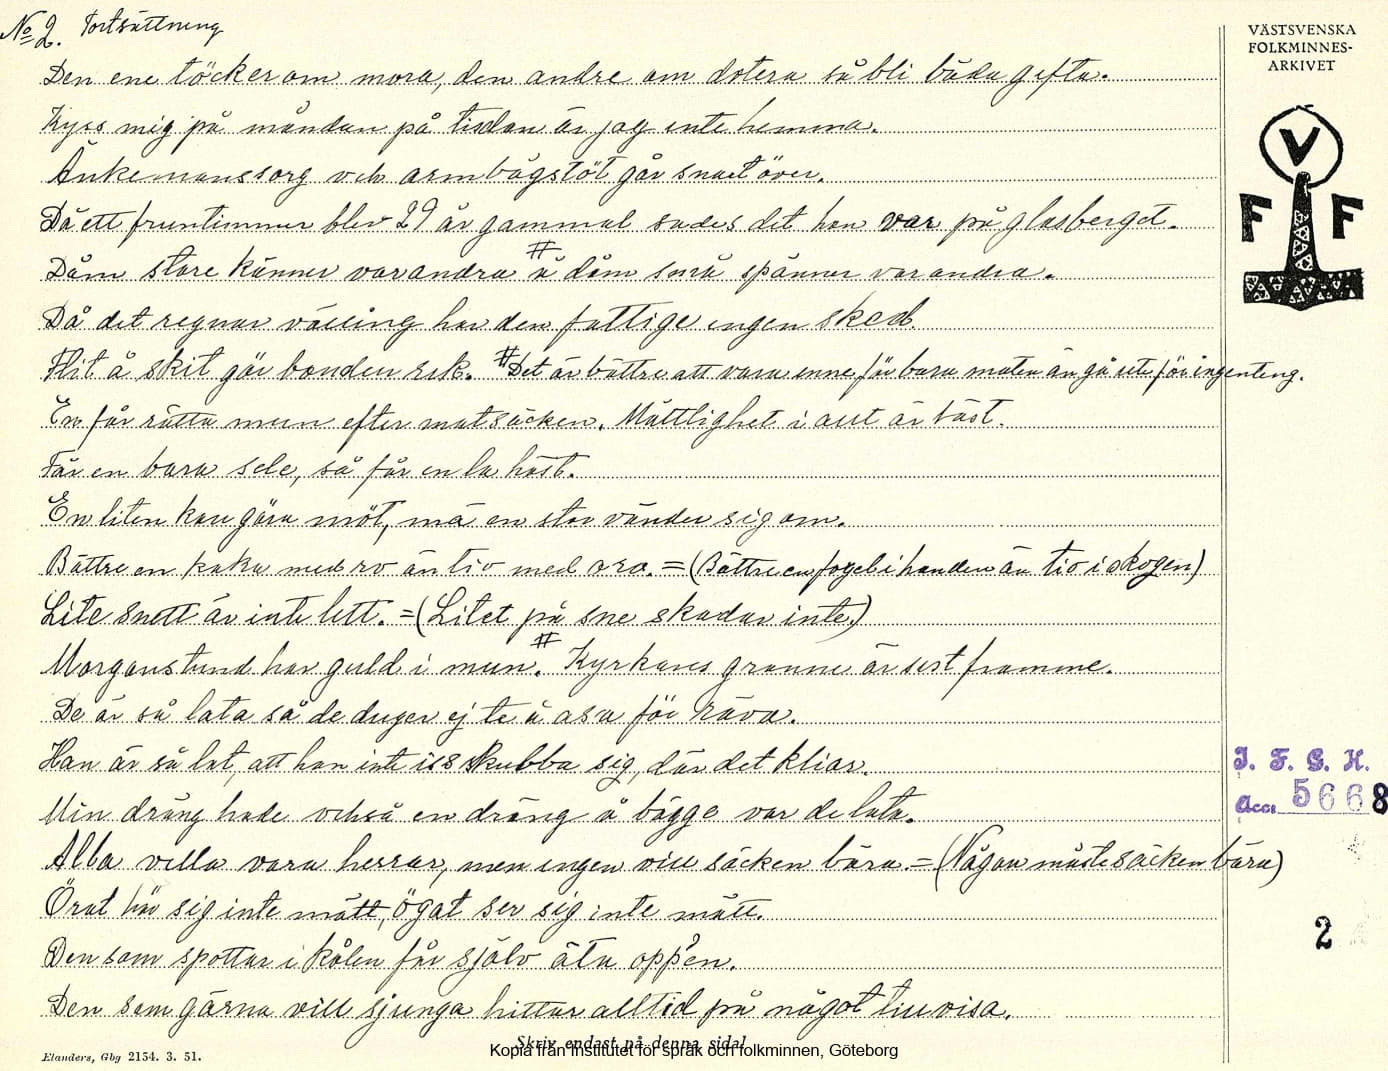 No 2. Fortsättning
VÄSTSVENSKA
FOLKMINNES-
ARKIVET
V
F F
Den ene töcker om mora, den andre om dotera så bli båda gifta.
Kyss mig på måndan på tisdan är jag inte hemma.
Änkemanssorg och armbågstöt går snart över.
Då ett fruntimmer blev 29 år gammal sades det hon var på glasberget.
Dåm store känner varandra # å dåm små spänner varandra.
Då det regnar välling har den fattige ingen sked.
Flit å skit gör bonden rik. # Det är bättre att vara inne för bara maten än gå ute för ingenting.
En får rätta mun efter matsäcken. Måttlighet i allt är bäst.
Får en bara sele, så får en la häst.
En liten kan göra möt, mä en stor vänder sig om.
Bättre en kaka med ro än tio med oro. = (Bättre en fogel i handen än tio i skogen)
Lite snett är inte lett. = (Litet på sne skadar inte.)
Morgonstund har guld i mun. # Kyrkans granne är sist framme.
De är så lata så de duger ej te å asa för räva.
Han är så lat, att han inte ids skubba sig, där det kliar.
Min dräng hade också en dräng å bägge var de lata.
Alla vella vara herrar, men ingen vill säcken bära. = (Någon måste säcken bära)
Örat hör sig inte mätt, ögat ser sig inte mätt.
Den som spottar i kålen får själv äta oppen.
Den som gärna vill sjunga hittar alltid på något liu visa.
I. F. G. H.
Acc. 5668
2
Skriv endast på denna sida!
Kopia från Institutet för språk och folkminnen, Göteborg
Elanders, Gbg 2154. 3. 51.